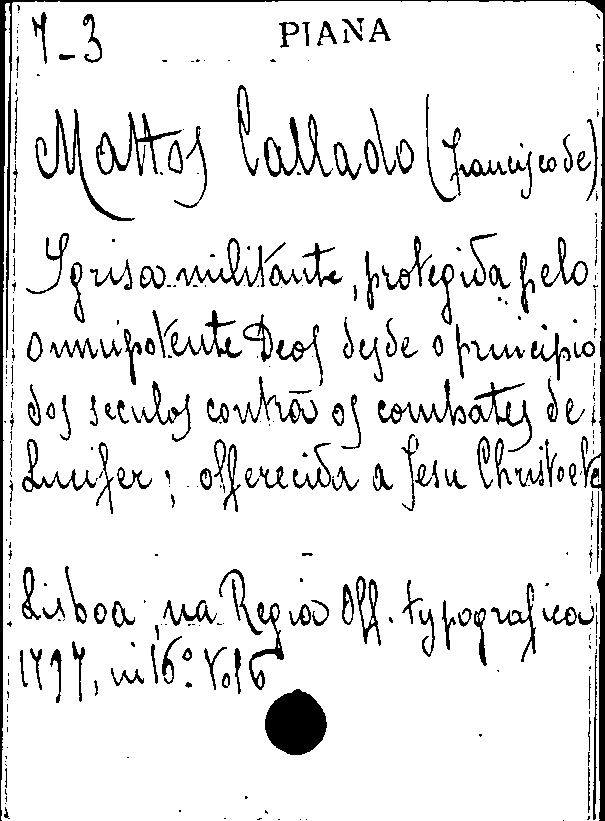 7-3
PIANA
Mattos Callado (Francisco de)
Igrisa militante, protegida pelo
omnipotente Deos desde o principio
dos seculos contra os combates de
Lucifer; offerecida a Jesu Christo etc
Lisboa, na Regia Off. typografica
1797, in 16º. Vol 6